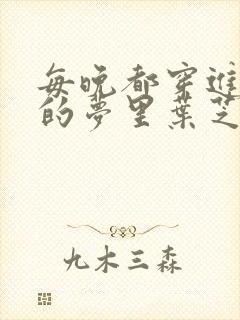 每晚都穿進
的夢里葉芝
九木三森